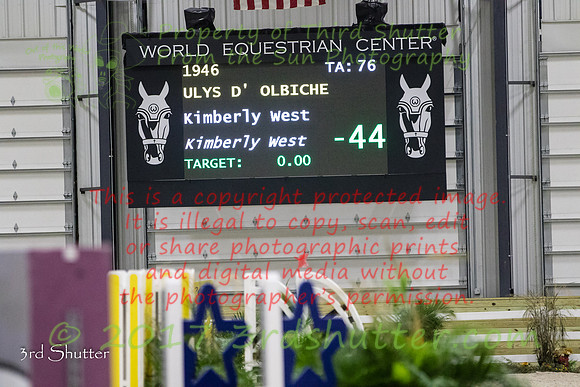 Property of Third Shutter
From the Sun Photography
WORLD EQUESTRIAN CENTER®
1946 TA: 76
ULYS D' OLBICHE
Kimberly West
Kimberly West -44
TARGET: 0.00
This is a copyright protected image.
It is illegal to copy, scan, edit
or share photographic prints
and digital media without
the photographer's permission.
© 2017 3rdShutter.com
3rd Shutter